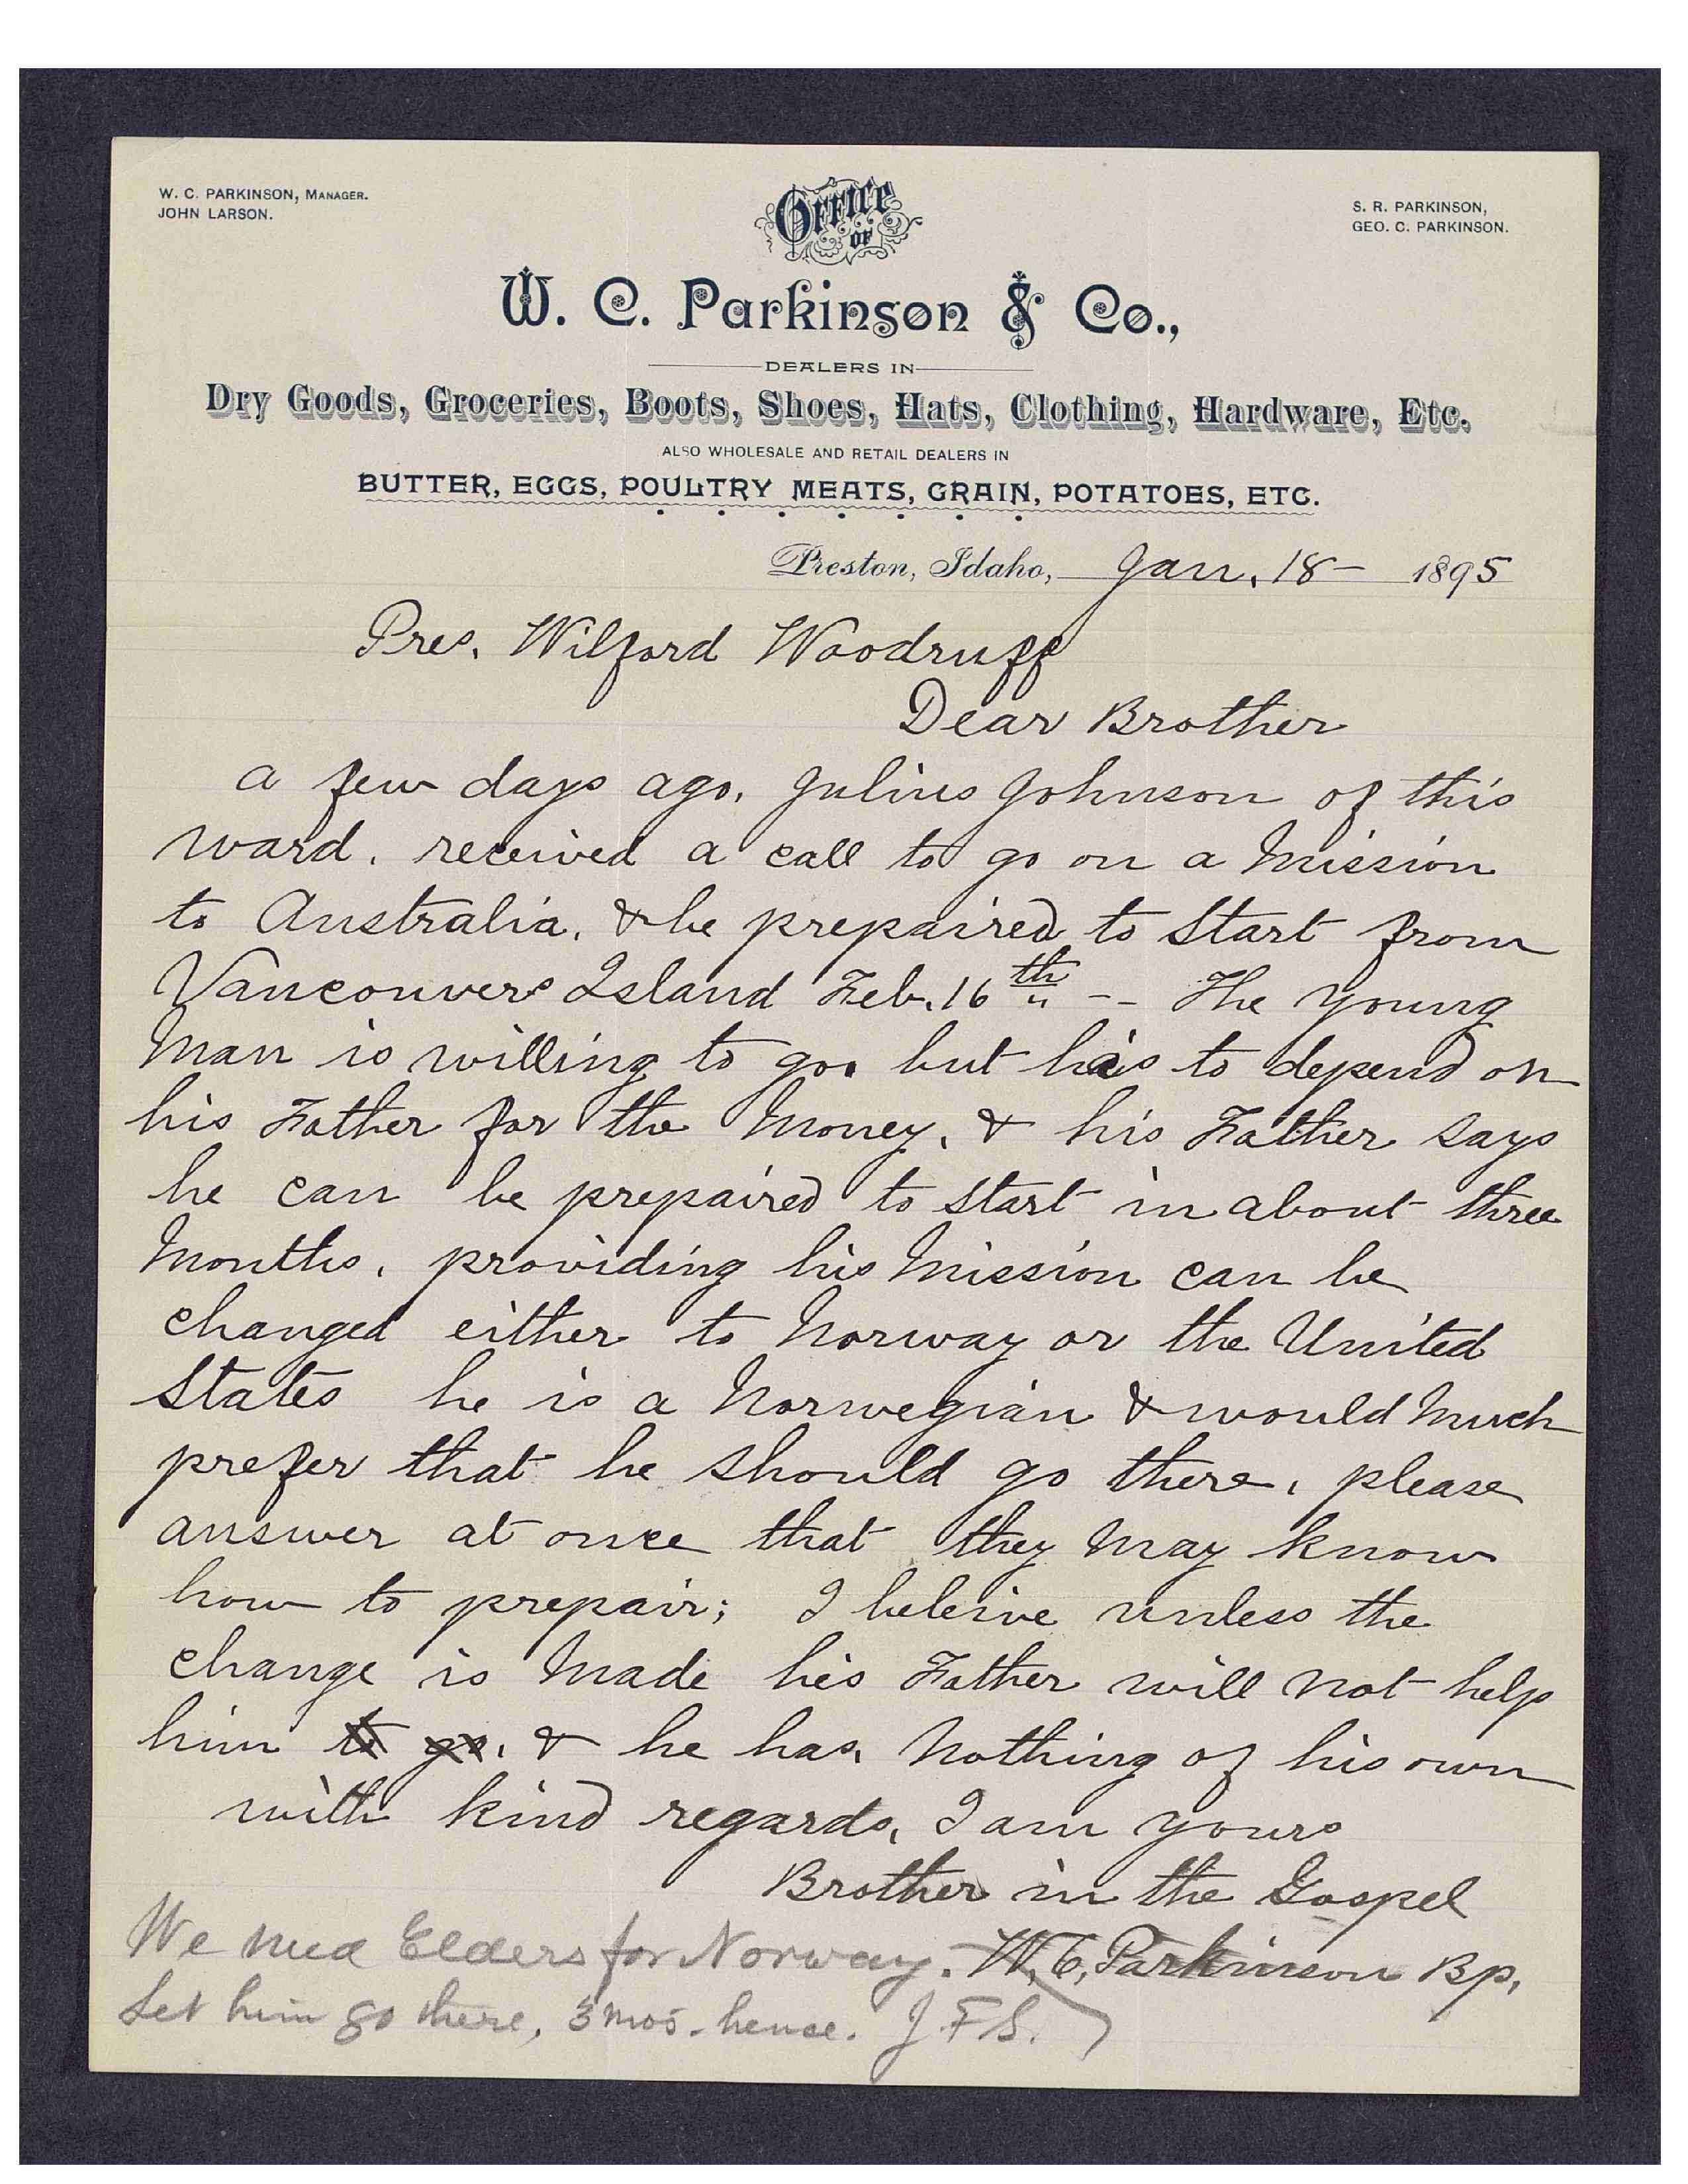 W. C. PARKINSON, MANAGER.
JOHN LARSON.
S. R. PARKINSON,
GEO. C. PARKINSON.
OFFICE
OF
W. C. Parkinson & Co.,
DEALERS IN
Dry Goods, Groceries, Boots, Shoes, Hats, Clothing, Hardware, Etc.
ALSO WHOLESALE AND RETAIL DEALERS IN
BUTTER, EGGS, POULTRY MEATS, GRAIN, POTATOES, ETC.
Preston, Idaho, Jan. 18 – 1895
Pres. Wilford Woodruff
Dear Brother
a few days ago. Julius Johnson of this
ward. received a call to go on a Mission
to Australia. & be prepaired to Start from
Vancouvers Island Feb. 16th -- The young
Man is willing to go. but has to depend on
his Father for the Money. & his Father says
he can be prepaired to start in about three
Months. providing his Mission can be
changed either to Norway or the United
States he is a Norwegian & would Much
prefer that he should go there. please
answer at once that they May know
how to prepair; I beleive unless the
change is Made his Father will not help
him to go. & he has. Nothing of his own
with kind regards. I am yours
Brother in the Gospel
W. C. Parkinson Bp.
We need Elders for Norway.
Let him go there, 3 mos. hence. J. F. S.